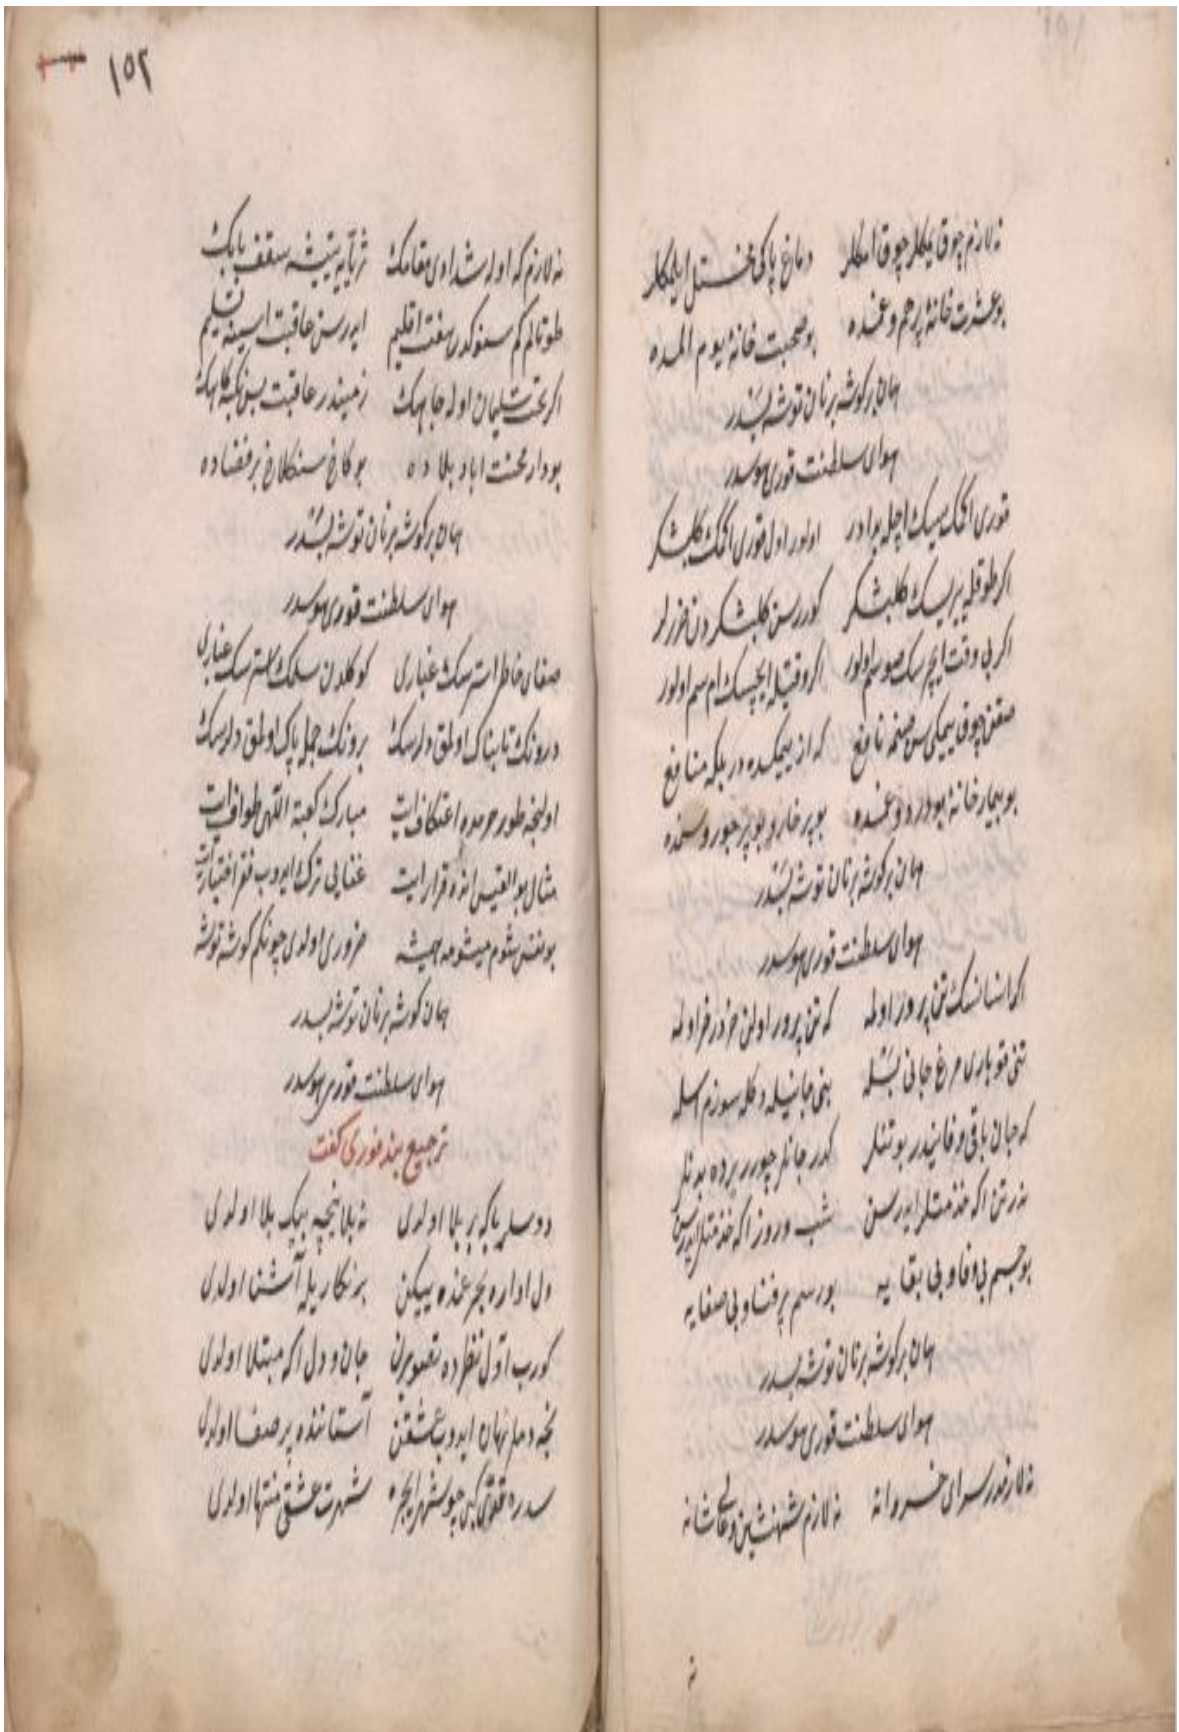 نه لازم چوق یمکلر چوق امکلر دماغ پاکی مختل ایلمکلر
بو عشرت خانهٔ پر هم و غمده بو صحبت خانهٔ یوم المده
همان بر کوشه بر نان توشه بسدر
هوای سلطنت قوری هوسدر
قوری اتمک سیک اچله برادر اولور اول قوری اتمک کلبشکر
اکر طوقله یرسک کلبشکر کوررسن کلبشکردن ضررلر
اکر بی وقت ایچرسک صو سم اولور اکر وقتیله ایچسک ام سم اولور
صقن چوق یمکی سن صنمه نافع که از یمکده در بلکه منافع
بو بیمار خانهٔ پر درد و غمده بو پر خار و بو پر جور و ستمده
همان بر کوشه بر نان توشه بسدر
هوای سلطنت قوری هوسدر
اکر انسانسک تن پرور اولمه که تن پرور اولن خردر خر اولمه
تنی قو باری مرغ جانی بسله بنی جانیله دکله سوزم اسله
که جان باقی و فانیدر بو تنلر کدر جانلر چورر یرده بدنلر
نه در تن اکا خدمتلر ایدرسن شب و روز اکا خدمتلر ایدرسن
بو جسم بی وفا و بی بقایه بو رسم پر فنا و بی صفایه
همان بر کوشه بر نان توشه بسدر
هوای سلطنت قوری هوسدر
نه لازمدر سرای خسروانه نه لازم شهنشین و عالی شانه
نه
١٥٢
نه لازم که اوله شدادی مقامک ثریایه یتیشه سقف بامک
طوتالم کم سنوکدر هفت اقلیم ایدرسن عاقبت ایسینه تسلیم
اکر تخت سلیمان اوله جاهک زمیندر عاقبت بس تکیه کاهک
بو دار محنت اباد بلاده بو کاخ سنکلاخ پر فناده
همان بر کوشه بر نان توشه بسدر
هوای سلطنت قوری هوسدر
صفای خاطر استرسک غباری کوکلدن سلمک استرسک غباری
درونک تابناک اولمق دلرسک برونک جمله پاک اولمق دلرسک
اولنجه طور حرمده اعتکاف ایت مبارک کعبة اللهی طواف ایت
مثال بو القبیس انده قرار ایت غنایی ترک ایدوب فقر اختیار ایت
بو نفس شوم میشومه همیشه ضروری اولدی چونکم کوشه توشه
همان کوشه بر نان توشه بسدر
هوای سلطنت قوری هوسدر
ترجیع بند فوری کفت
دوستلر باکه بر بلا اولدی نه بلا نیجه بیک بلا اولدی
دل اواره بحر غمده ییکن بر نکار یله آشنا اولدی
کورب اول نظرده تصویرن جان و دل اکا مبتلا اولدی
نجه دملر نهان ایدوب عشقن آستاننده پر صفا اولدی
سدره قدی کبی چو شهر ایچره شهرت عشقی منتها اولدی